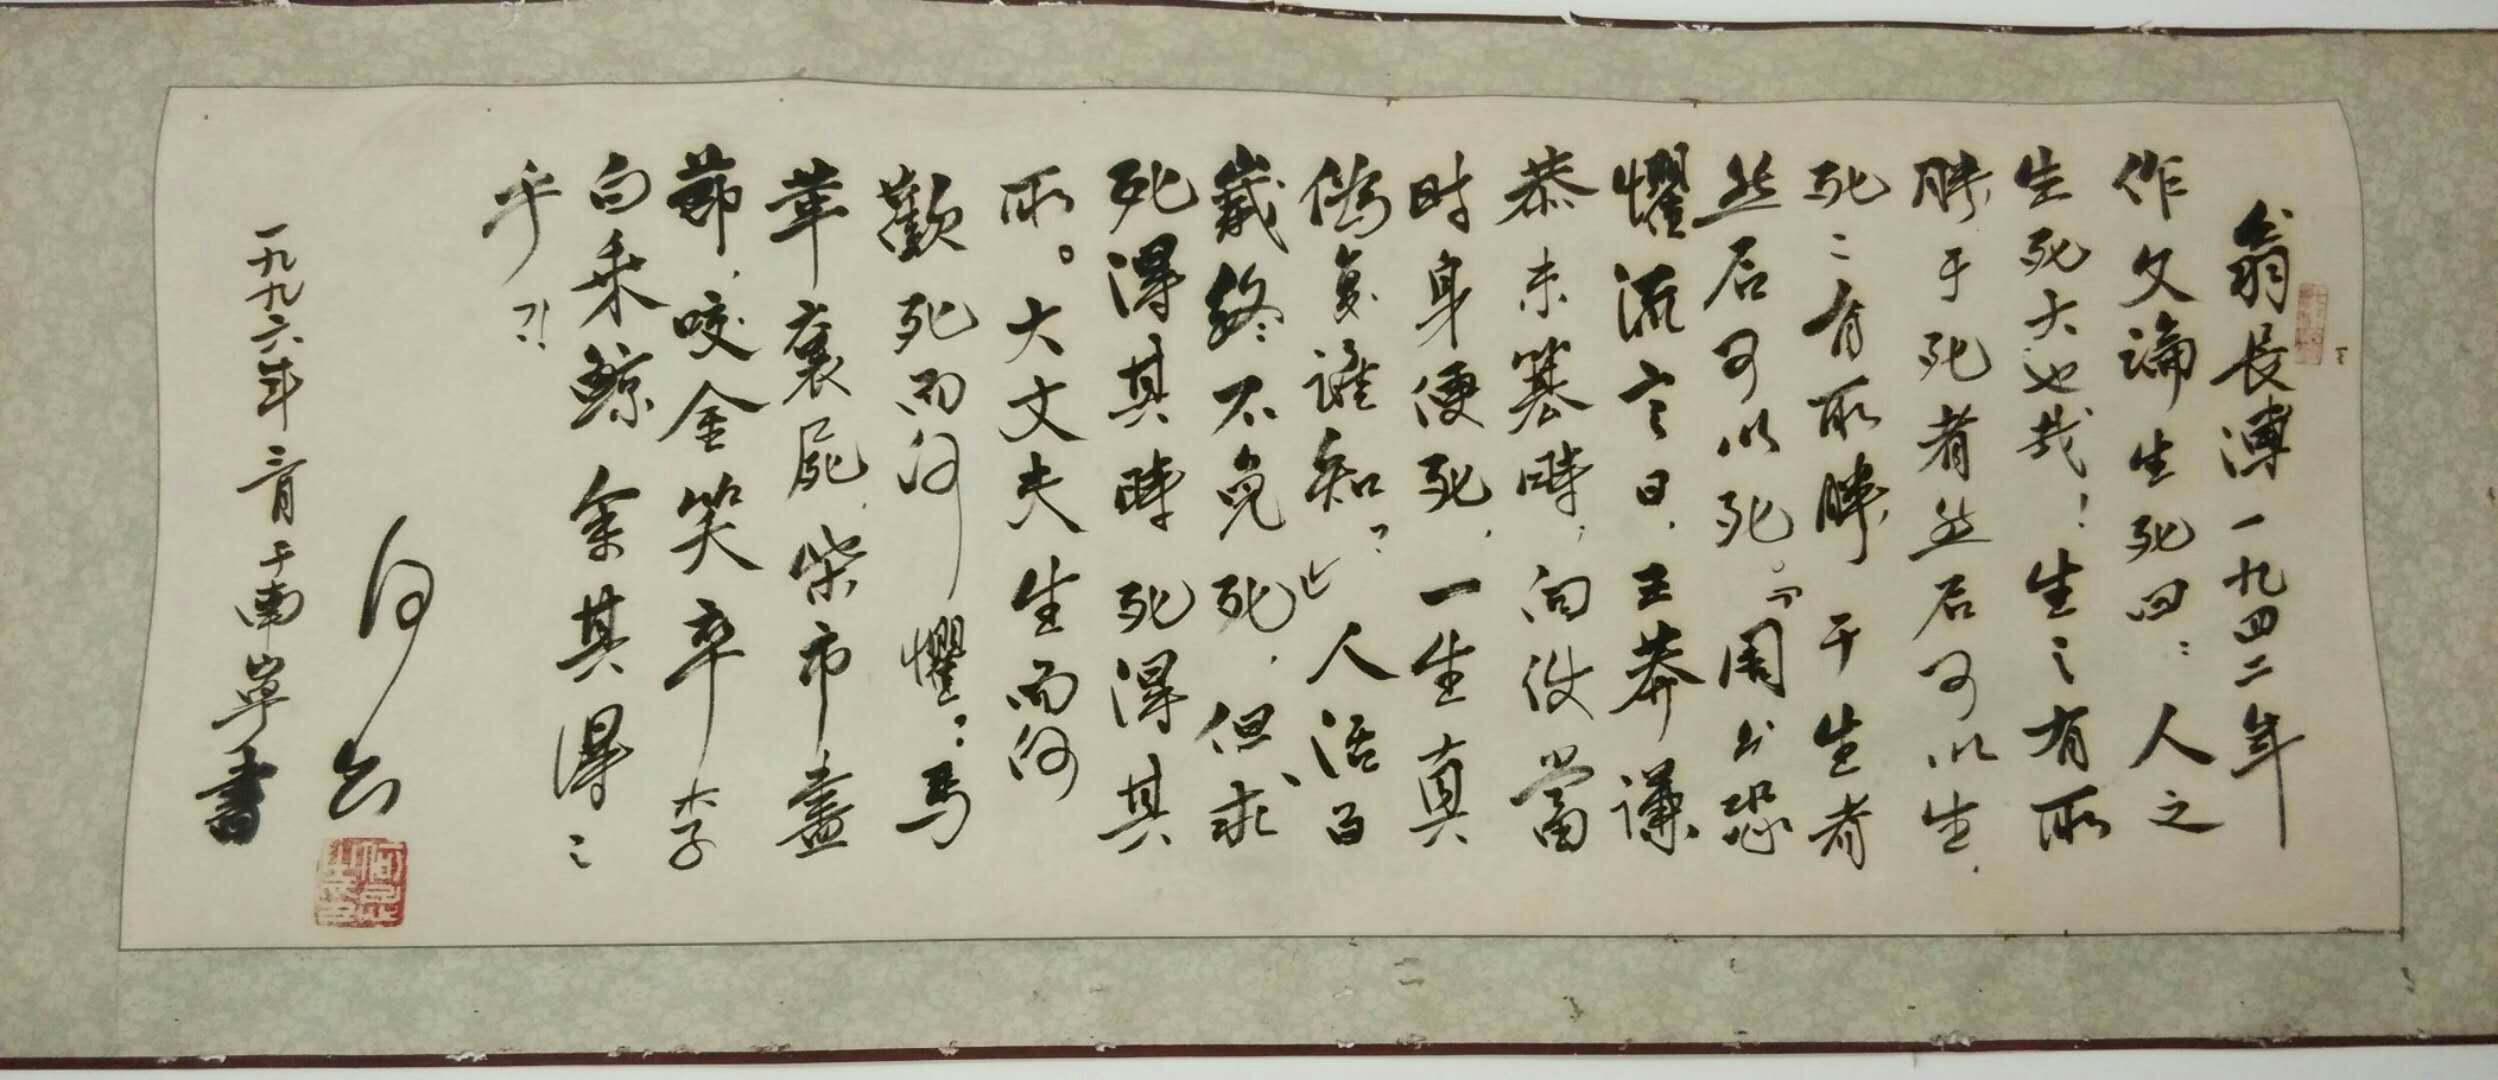 翁長溥一九四二年
作文論生死曰：人之
生死大也哉！生之有所
勝于死者然后可以生，
死之有所勝于生者
然后可以死。“周公恐
懼流言日，王莽謙
恭未篡時，向使當
时身便死，一生真
偽复誰知？”人活百
歲終不免死，但求
死得其時死得其
所。大丈夫生而何
歡死而何懼：马
革裹屍，柴市盡
節，咬金笑卒李
白乘鯨余其得之
乎？！
一九九六年二月于南寧書